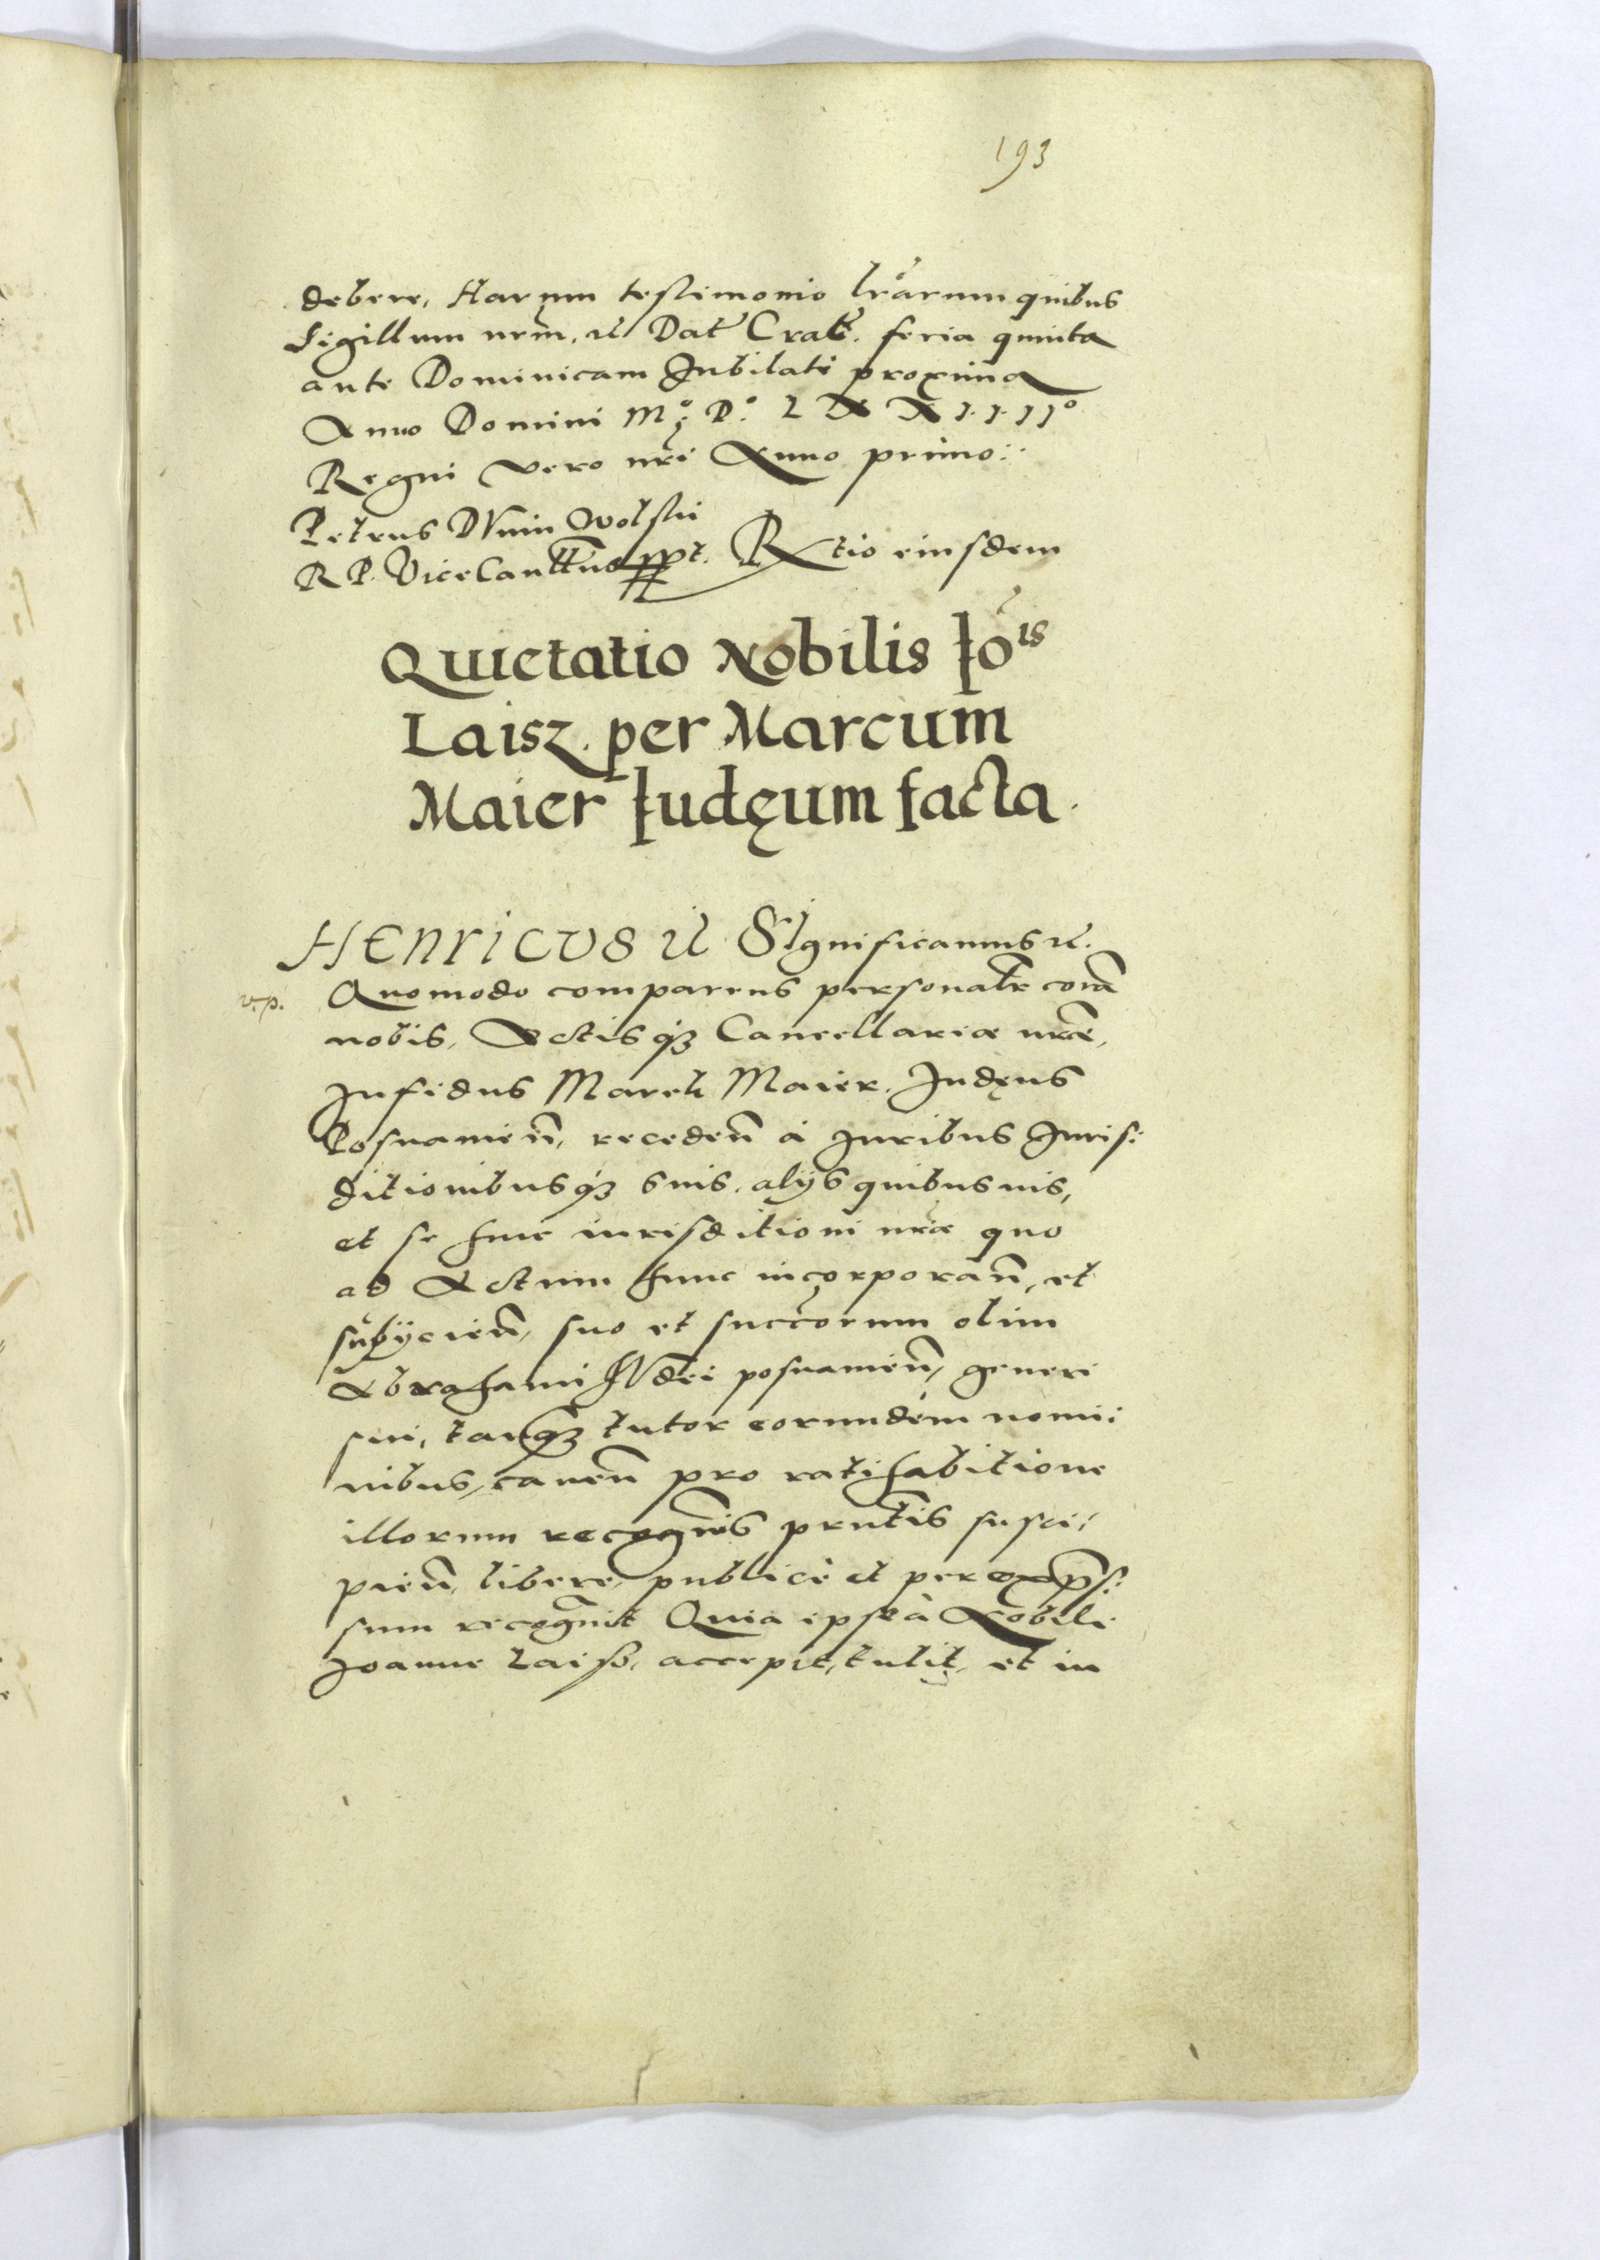 193
debere, Harum testimonio lrarum quibus
Sigillum nrm, etc Dat Crac. feria quinta
ante Dominicam Jubilate proxima
Anno Domini Mo. Do. LXXIIIIo
Regni vero nri Anno primo:
Petrus DVnin Wolski
R P. ViceCancellarius sspt. Rtio eiusdem
Quietatio Nobilis Iois
Laisz. per Marcum
Maier Iudęum facta.
HENRICVS etc SIgnificamus etc.
v.p. Quomodo comparens personalr cora
nobis, Actisq3 Cancellariæ nræ,
Infidus Marek Maier. Judęus
Posnanien, receden à Juribus Juris:
ditionibusq3 suis. alijs quibusuis,
et se huic iurisditioni nræ quo
ad Actum hunc incorporan, et
subÿcien, suo et succorum olim
Abrahami IVdei posnanien, generi
sui, tanq3 tutor eorundem nomi:
nibus, cauen pro ratihabitione
illorum recognis prntis susci:
pien, libere, publicè et per exps:
sum recognit Quia ipse à Nobili
Joanne Laisz, accepit, tulit, et in